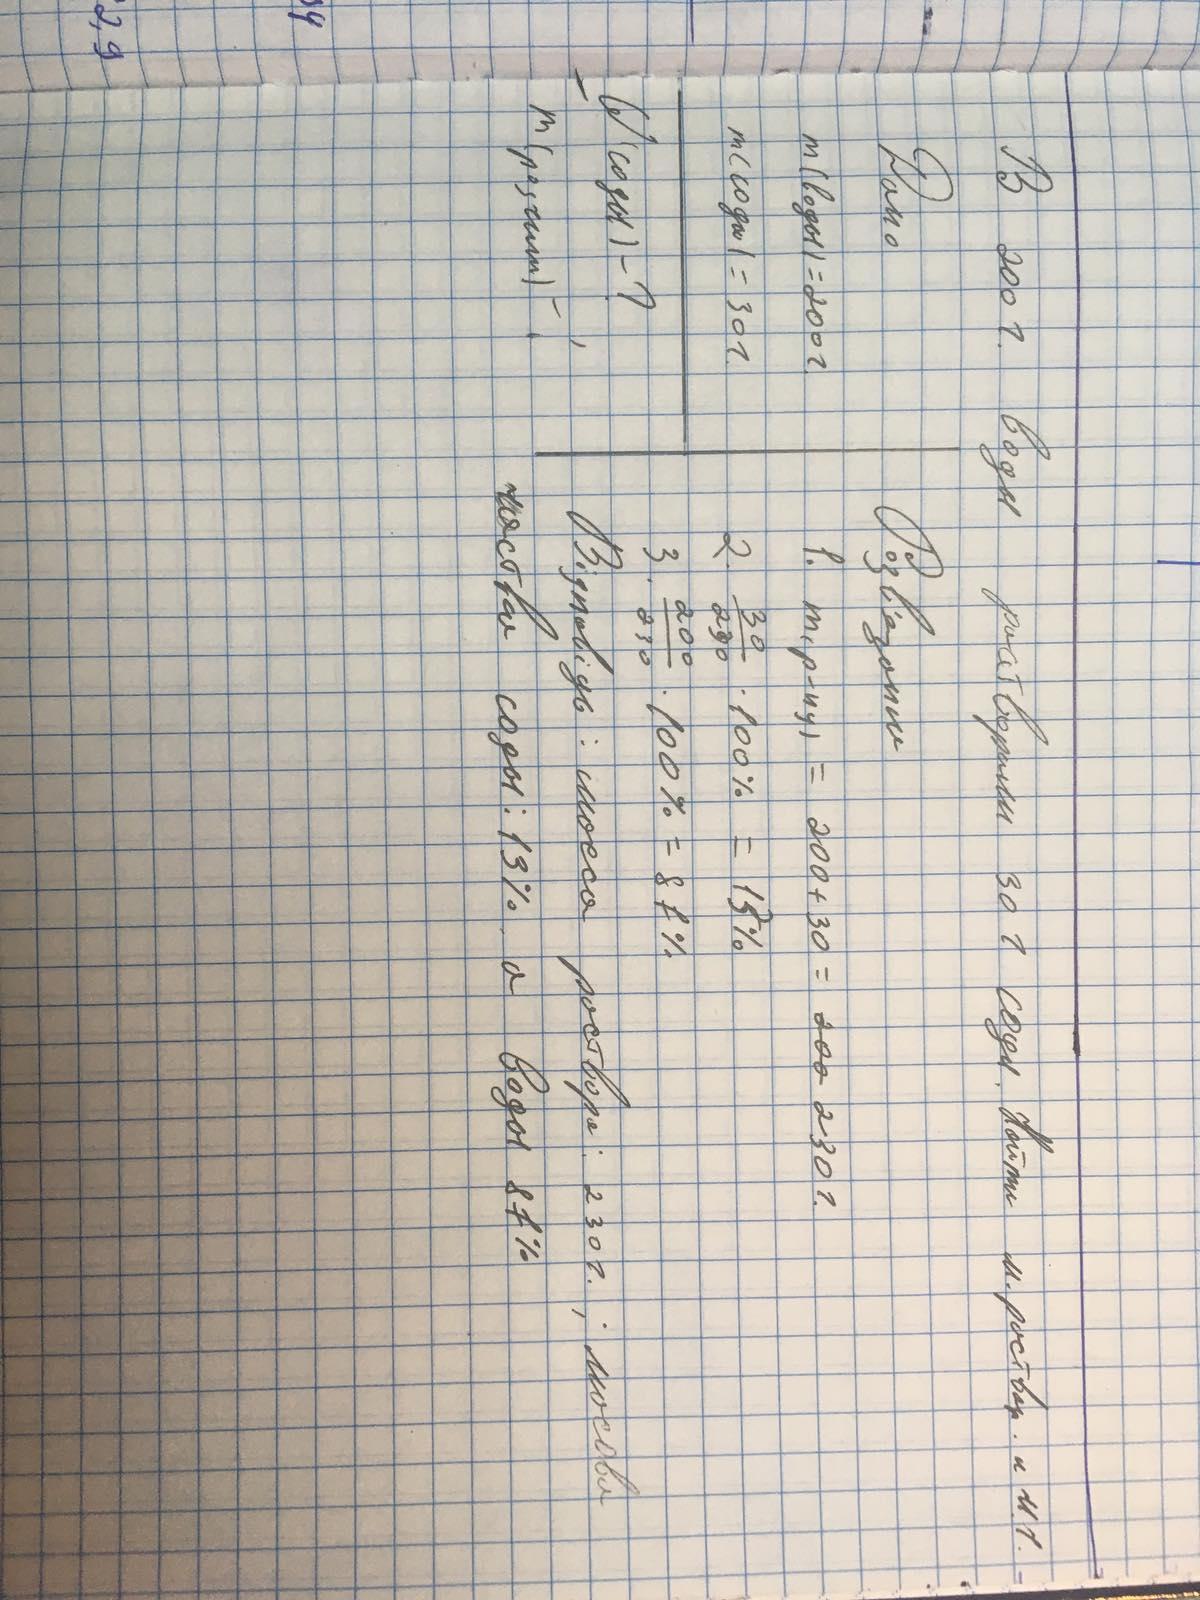 В 200 г. воды растворили 30 г соды. Найти м. раствор. и м.ч.
Дано
m(воды)=200г.
m(соды)=30г.
W(соды)-?
m(розчин)-,
Розв'язання
1. m(р-ну) = 200+30= 200 230г.
2. 30/230 · 100% = 13%
3. 200/230 · 100% = 87%
Відповідь: масса раствора: 230г. ; массова
частка соды: 13%, а воды 87%
34
2,9